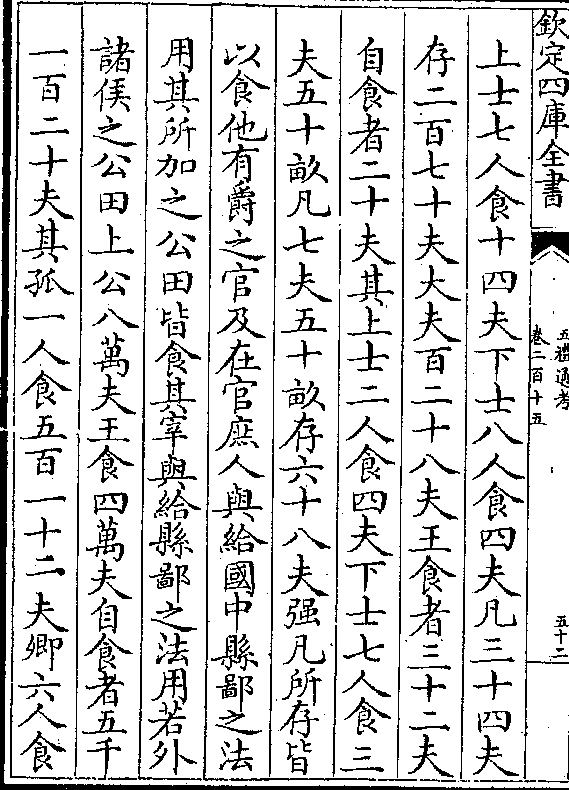 欽定四庫全書
五禮通考
卷二百十五
五十二
上士七人食十四夫下士八人食四夫凡三十四夫
存二百七十夫大夫百二十八夫王食者三十二夫
自食者二十夫其上士二人食四夫下士七人食三
夫五十畝凡七夫五十畝存六十八夫强凡所存皆
以食他有爵之官及在官庶人與給國中縣鄙之法
用其所加之公田皆食其宰與給縣鄙之法用若外
諸侯之公田上公八萬夫王食四萬夫自食者五千
一百二十夫其孤一人食五百一十二夫卿六人食